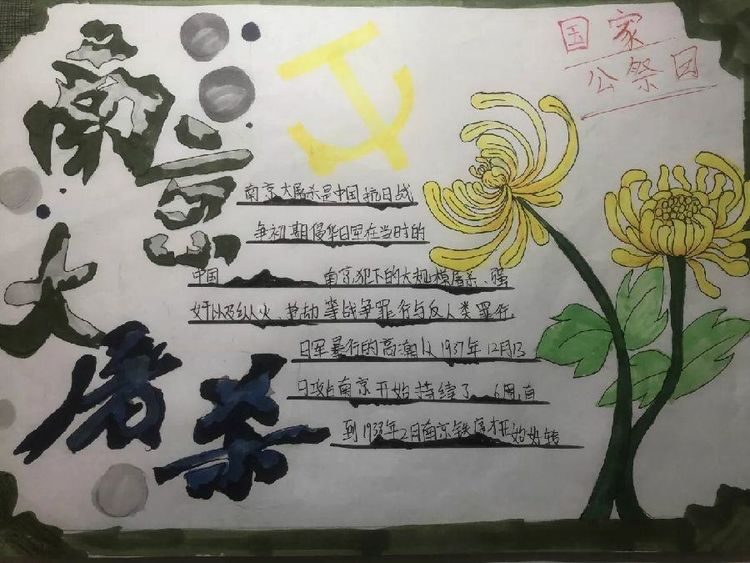 南京
大屠杀
国家
公祭日
南京大屠杀是中国抗日战
争初期侵华日军在当时的
中国 南京犯下的大规模屠杀 强
奸以及纵火 抢劫等战争罪行与反人类罪行.
日军暴行的高潮从1937年12月13
日攻占南京开始持续了 6周,直
到1938年2月南京秩序才开始好转